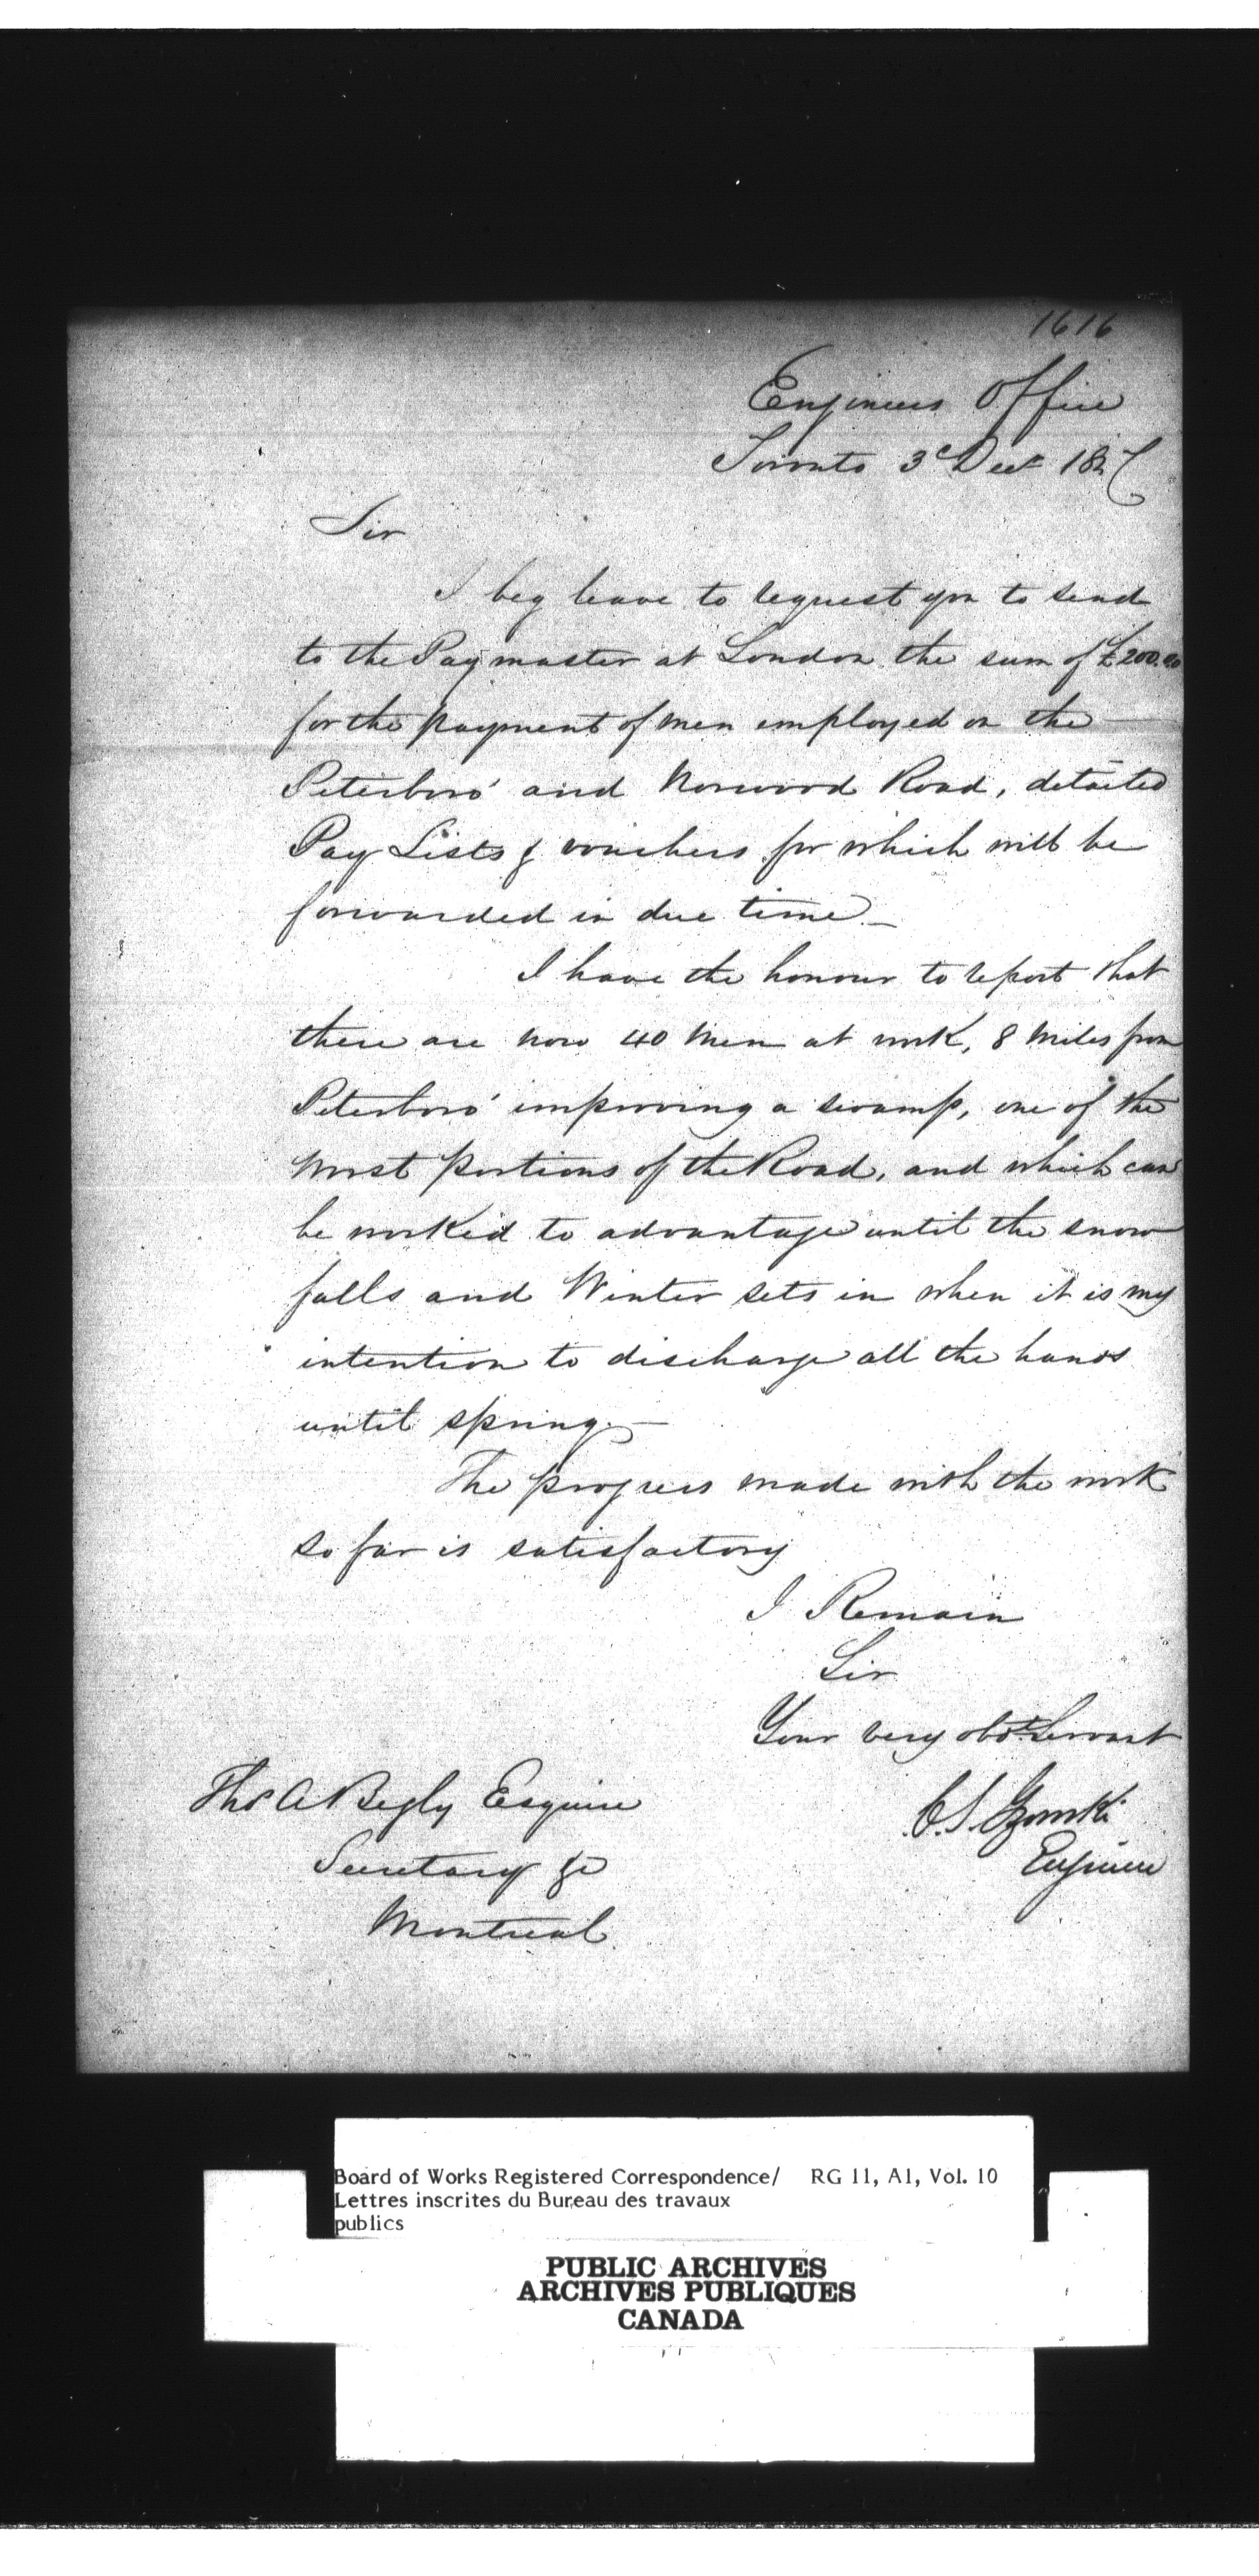 1616
Engineers Office
Toronto 3d Decr 184
Sir
I beg leave to request you to send
to the Paymaster at London the sum of £200.
for the payment of men employed on the
Peterboro' and Norwood Road, detailed
Pay Lists & vouchers for which will be
forwarded in due time_
I have the honour to report that
there are now 40 Men at work, 8 Miles from
Peterboro' improving a swamp, one of the
worst portions of the Road, and which can
be worked to advantage until the snow
falls and Winter sets in when it is my
intention to discharge all the hands
until spring.—
The progress made with the work
so far is satisfactory
I Remain
Sir
Your very obdt Servant
C.S. Gzowski
Engineer
Thos A Begly Esquire
Secretary &c
Montreal
Board of Works Registered Correspondence/ RG 11, A1, Vol. 10
Lettres inscrites du Bureau des travaux
publics
PUBLIC ARCHIVES
ARCHIVES PUBLIQUES
CANADA